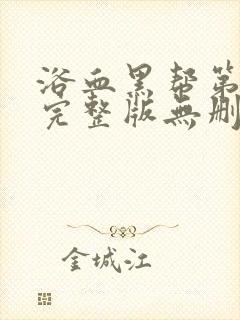 浴血黑帮第
完整版無删
金城江